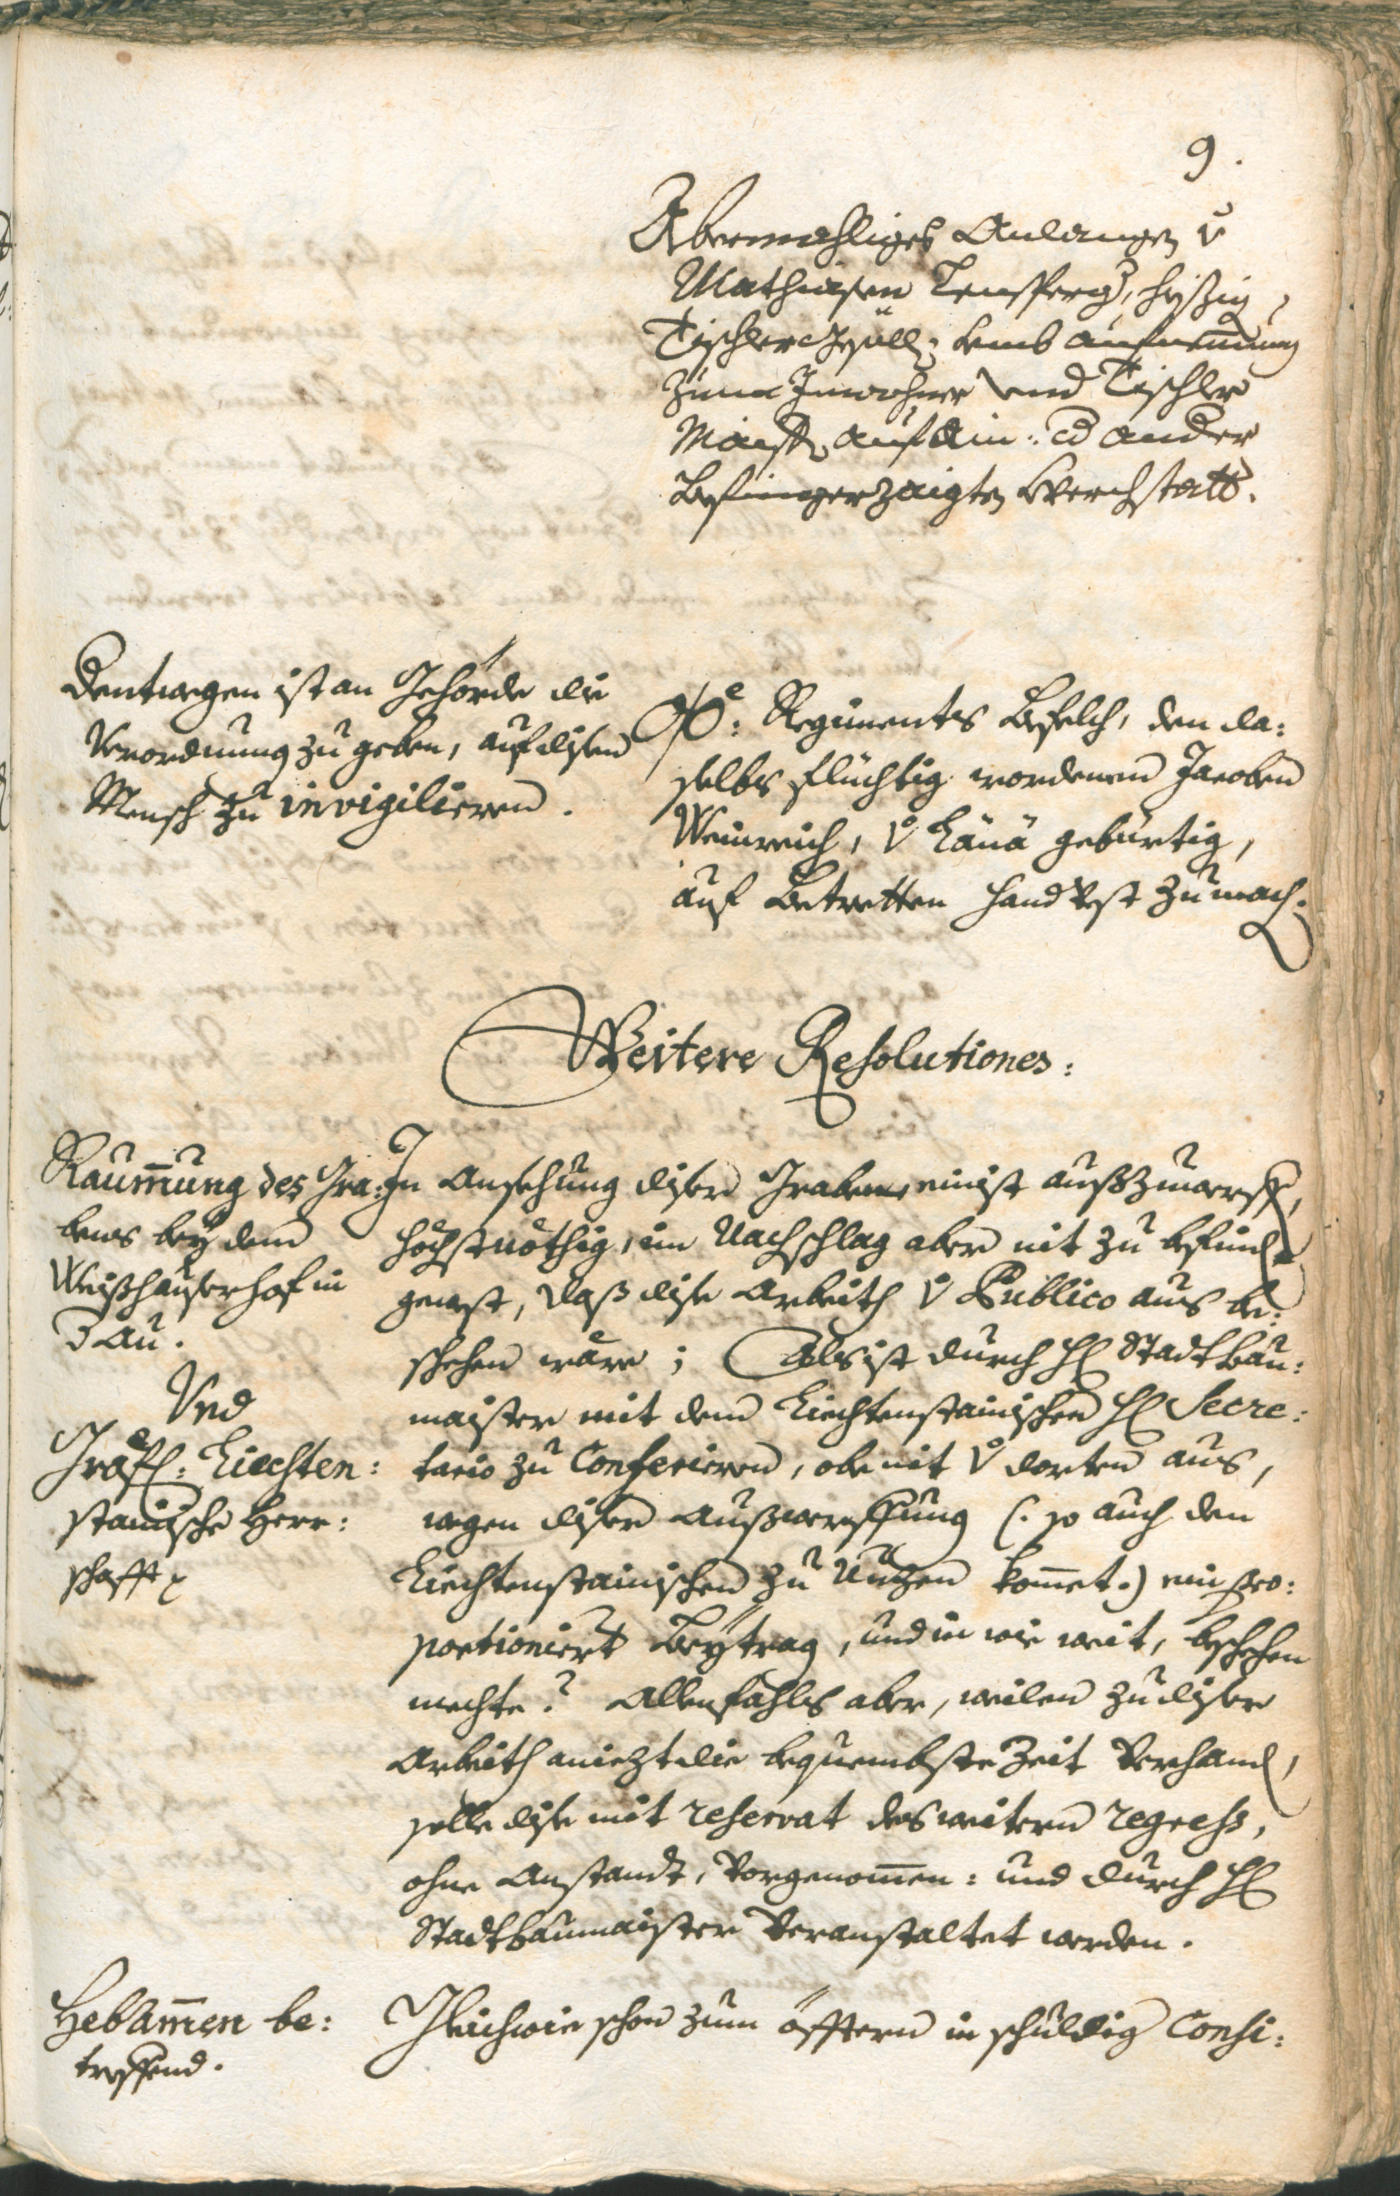 9.
Abermahliges Anlangen v
Mathiasen, hießig
Tischler Gsöll, umb aufnemmung
zum Inwohner und Tischler
Maister auf ain: oder ander
Befingerzaigte Werchstatt.
Dentwegen ist an Gehörde die
Verordnung zu geben, auf disen
Mensch zu invigilieren.
O: Ö: Regiments Befelch, den da:
selbs flüchtig wordenen Jacoben
Weinreich, v Länä gebürtig,
auf Betretten handtvest zu mach.
Weitere Resolutiones:
Raumung des Gra:
bens bey dem
Weißhauserhof in
d Au.
Vnd
Gräfl: Liechten:
stainische Herr:
schafft
In Ansehung diser Graben, einist außzuwerffen,
höchstnöthig, im Nachschlag aber nit zu befinden
gewest, daß dise Arbeith v Publico aus be:
schehen wäre; Als ist durch H Stadtbau:
maister mit dem Liechtenstainischen H Secre:
tario zu Conferieren, ob nit v dorten aus,
wegen diser Außwerffung (: so auch den
Liechtenstainischen zu Nuzen kommet.) ein pro:
portioniert Beytrag, und in wie weit, beschehen
mechte? Allenfahls aber, weilen zu diser
Arbeith aniezt die bequembste Zeit Verhanden,
solle dise mit reservat des weitern regress,
ohne Anstandt, Vorgenommen: und durch H
Stadtbaumaister Veranstaltet werden.
Hebammen be:
treffend.
Gleichwie schon zum öfftern in schuldig Consi: